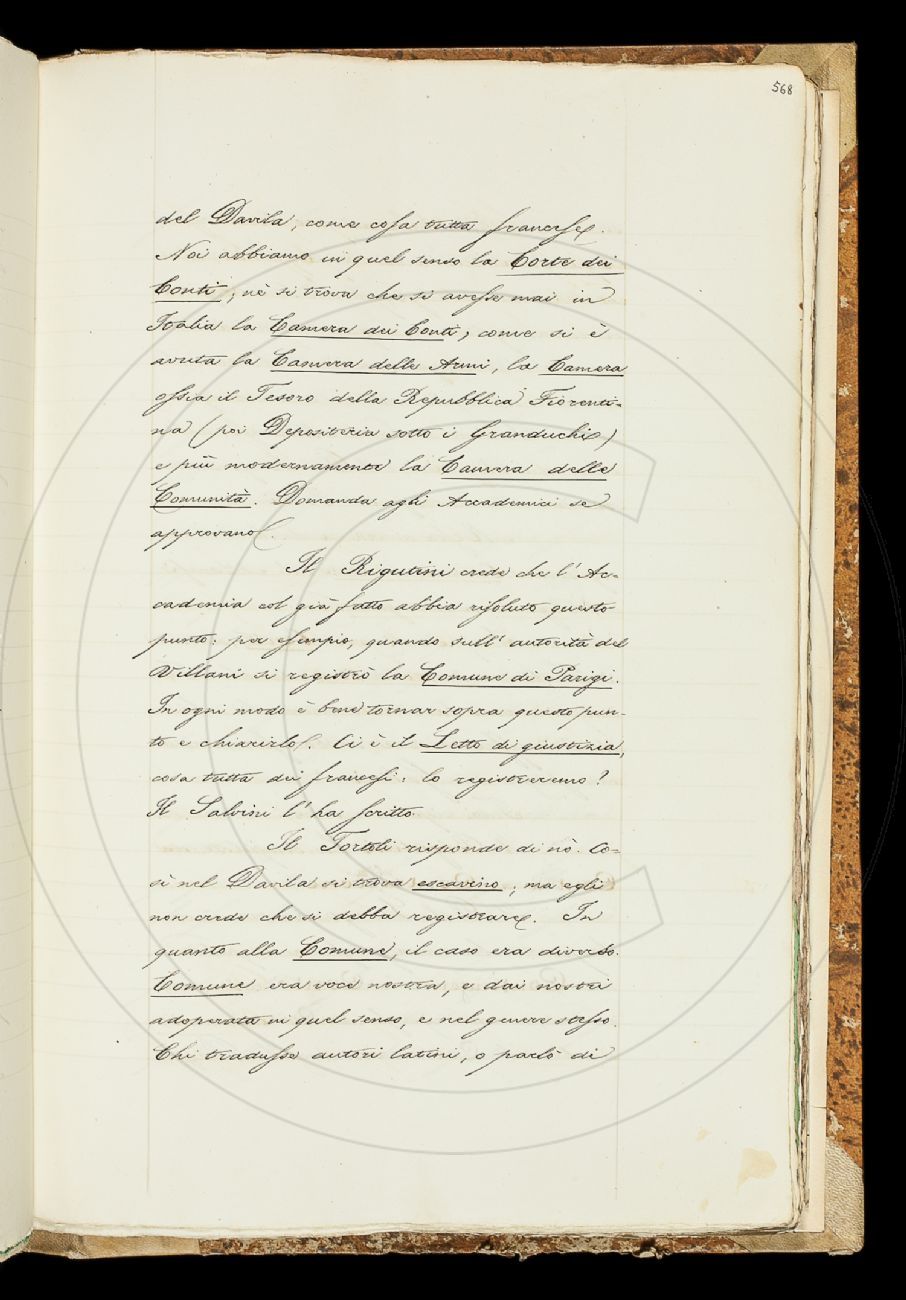 568
del Davila, come cosa tutta francese.
Noi abbiamo in quel senso la Corte dei
Conti, nè si trova che si avesse mai in
Italia la Camera dei Conti, come si è
avuta la Camera delle Armi, la Camera
ossia il Tesoro della Repubblica Fiorenti-
na (poi Depositeria sotto i Granduchi)
e più modernamente la Camera delle
Comunità. Domanda agli Accademici se
approvano.
Il Rigutini crede che l' Ac-
cademia col già fatto abbia risoluto questo
punto: per esempio, quando sull' autorità del
Villani si registrò la Comune di Parigi.
In ogni modo è bene tornar sopra questo pun-
to e chiarirlo. Ci è il Letto di giustizia,
cosa tutta dei francesi: lo registreremo?
Il Salvini l' ha scritto.
Il Tortoli risponde di nò. Co-
sì nel Davila si trova escavino; ma egli
non crede che si debba registrare. In
quanto alla Comune, il caso era diverso.
Comune era voce nostra, e dai nostri
adoperata in quel senso, e nel genere stesso.
Chi tradusse autori latini, o parlò di